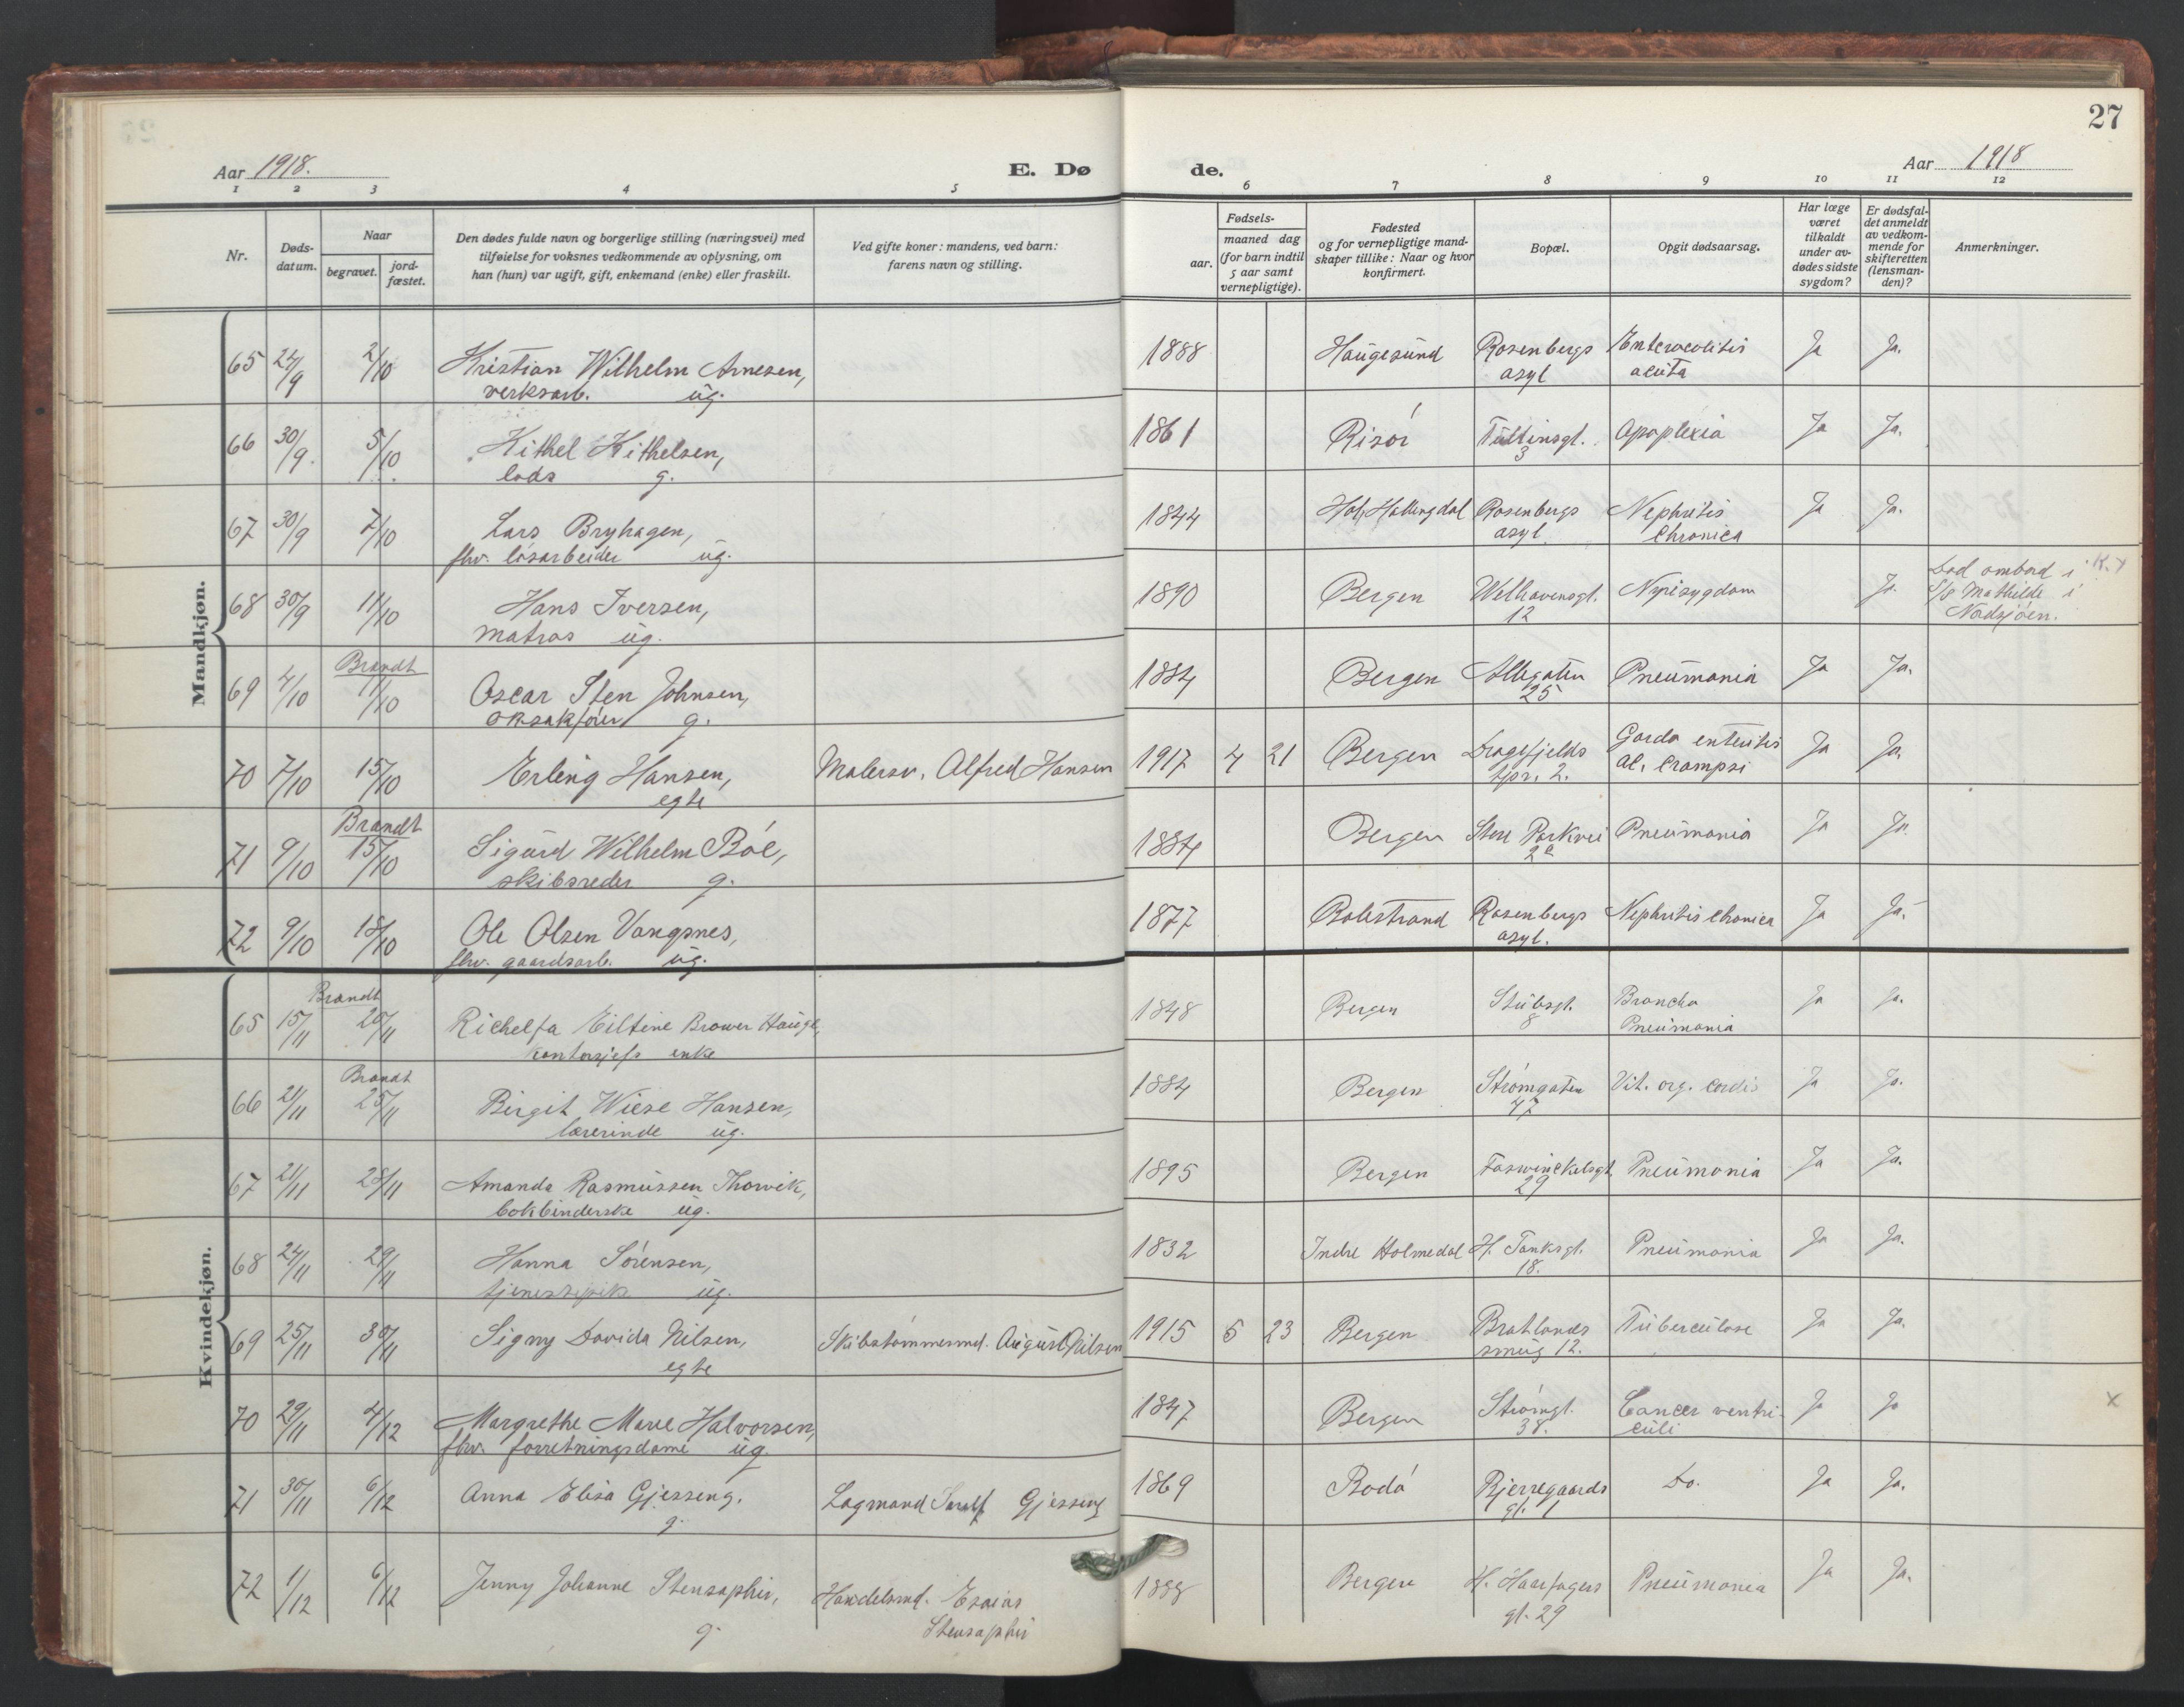 27
Aar 1918.
E. Dø
de.
Aar 1918
1 2 3 4 5 6 7 8 9 10 11 12
Nr.
Døds-
datum.
Naar
begravet.
jord-
fæstet.
Den dødes fulde navn og borgerlige stilling (næringsvei) med
tilføielse for voksnes vedkommende av oplysning, om
han (hun) var ugift, gift, enkemand (enke) eller fraskilt.
Ved gifte koner: mandens, ved barn:
farens navn og stilling.
Fødsels-
aar.
maaned dag
(for barn indtil
5 aar samt
vernepligtige).
Fødested
og for vernepligtige mand-
skaper tillike: Naar og hvor
konfirmert.
Bopæl.
Opgit dødsaarsag.
Har læge
været
tilkaldt
under av-
dødes sidste
sygdom?
Er dødsfal-
det anmeldt
av vedkom-
mende for
skifteretten
(lensman-
den)?
Anmerkninger.
Mandkjøn.
65 24/9 2/10 Kristian Wilhelm Arnesen, 1888 Haugesund Rosenbergs Enterocolitis Ja Ja.
verksarb. ug. asyl acuta
66 30/9. 5/10 Kithel Kithelsen, 1861 Risör Tultinsgt. Apoplexia Ja Ja.
lods g. 3
67 30/9 7/10 Lars Bryhagen, 1844 Hol, Hallingdal Rosenbergs Nephritis Ja Ja.
fhv. lösarbeider ug. asyl. Chronica
68 30/9 11/10 Hans Iversen, 1890 Bergen Welhavensgt. Nyresygdom Ja. Död ombord i
matros ug. 12 S/s Mathilde i
Nordsjöen.
Brændt
69 4/10 11/10 Oscar Sten Johnsen, 1884 Bergen Allegaten Pneumonia Ja Ja.
orsakförer g. 25
70 7/10 15/10 Erling Hansen, Malersv. Alfred Hansen 1917 4 21 Bergen Dragefjelds Ja Ja.
egte 2.
Brændt
71 9/10 15/10 Sigurd Wilhelm Böe, 1884 Bergen Store Parkvei Pneumonia Ja Ja.
skibsreder g. 2a
72 9/10 18/10 Ole Olsen Vangsnes, 1877 Balestrand Rosenbergs Nephritis Chonica Ja Ja.
fhv. gaardsarb. ug. asyl.
Kvindekjøn.
Brændt
65 15/11 20/11 Richelfa Eiltine Brower Hauge, 1848 Bergen Stubsgt. Broncho Ja Ja.
kontorsjefs enke 8 Pneumonia
Brændt
66 21/11 25/11 Birgit Wiese Hansen, 1884 Bergen Strömgaten Vit. org. cordis Ja Ja.
lærerinde ug. 47
67 21/11 28/11 Amanda Rasmussen Thorvik, 1895 Bergen Foswinckelsgt. Pneumonia Ja Ja.
bokbinderske ug. 29
68 24/11 29/11 Hanna Sörensen, 1832 Indre Holmedal H. Tanksgt. Pneumonia Ja Ja.
tjenestepike ug. 18.
69 25/11 30/11 Signy Davida Nilsen, Skibstömmermd. August Nilsen 1915 5 23 Bergen Bratlands Tuberculose Ja Ja.
egte smug 12.
70 29/11 4/12 Margrethe Marie Halvorsen, 1847 Bergen Strömgt. Cancer ventri- Ja Ja x
fhv. forretningsdame ug. 38. culi
71 30/11 6/12 Anna Elisa Gjessing. Lagmand Gjessing 1869 Bodö Bjerregaards Do. Ja Ja.
g. gt. 1
72 1/12 6/12 Jenny Johanne Stensaphir, Handelsmd. Esaias 1888 Bergen H. Haarfagers Pneumonia Ja Ja.
g. Stensaphir gt. 29